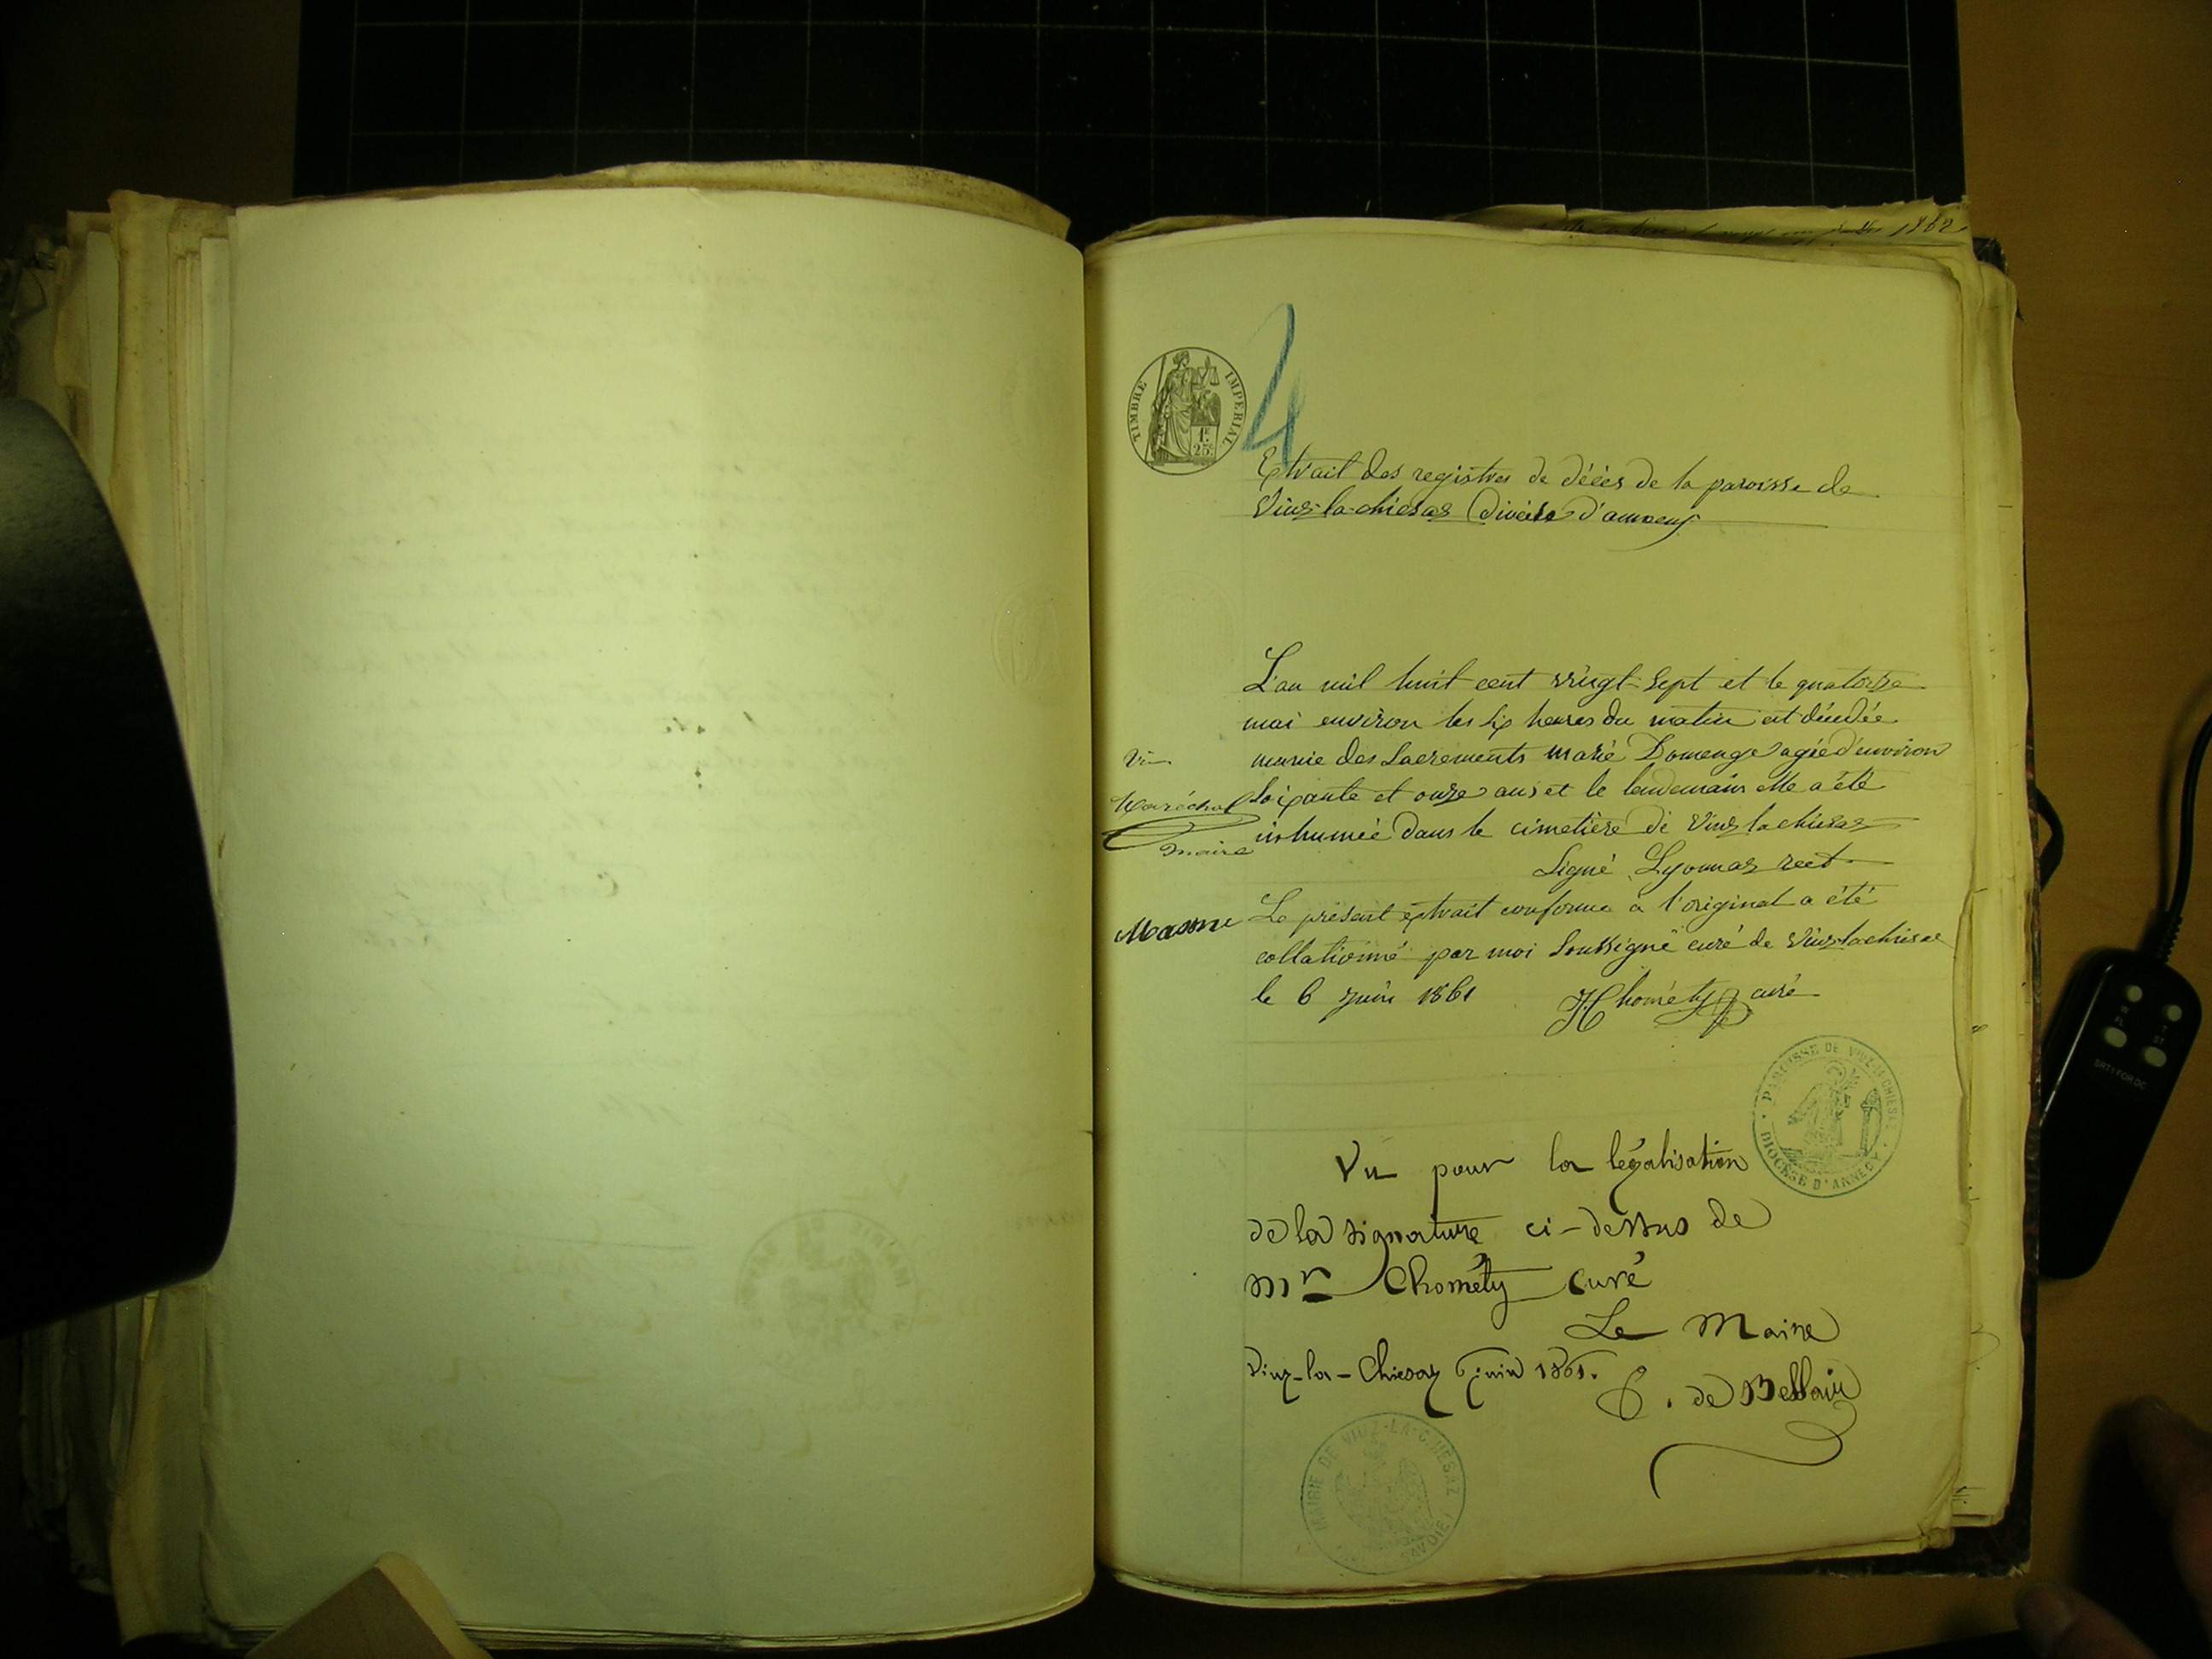 1862
4
TIMBRE IMPERIAL
1F.
25c
Extrait des registres de décès de la paroisse de
Viuz-la-chiesaz diocèse d'annecy
L'an mil huit cent vingt-sept et le quatorze
mai environ les six heures du matin est décédée
munie des Sacrements marie Domenge agée d'environ
soixante et onze ans et le lendemain elle a été
inhumée dans le cimetière de Viuz lachiesaz
Signé Lyonnaz rect
Vu
Maréchal
maire
Masson
Le présent extrait conforme à l'original a été
collationné par moi soussigné curé de Viuz-lachiesaz
le 6 juin 1861 Chométy curé
PAROISSE DE VIUZ-LA-CHIESAZ
DIOCÈSE D'ANNECY
Vu pour la légalisation
de la signature ci-dessus de
Mr Chométy curé
Le Maire
Viuz-la-Chiesaz 6 juin 1861.
C. de Bellair
MAIRIE DE VIUZ-LA-CHIESAZ
SAVOIE